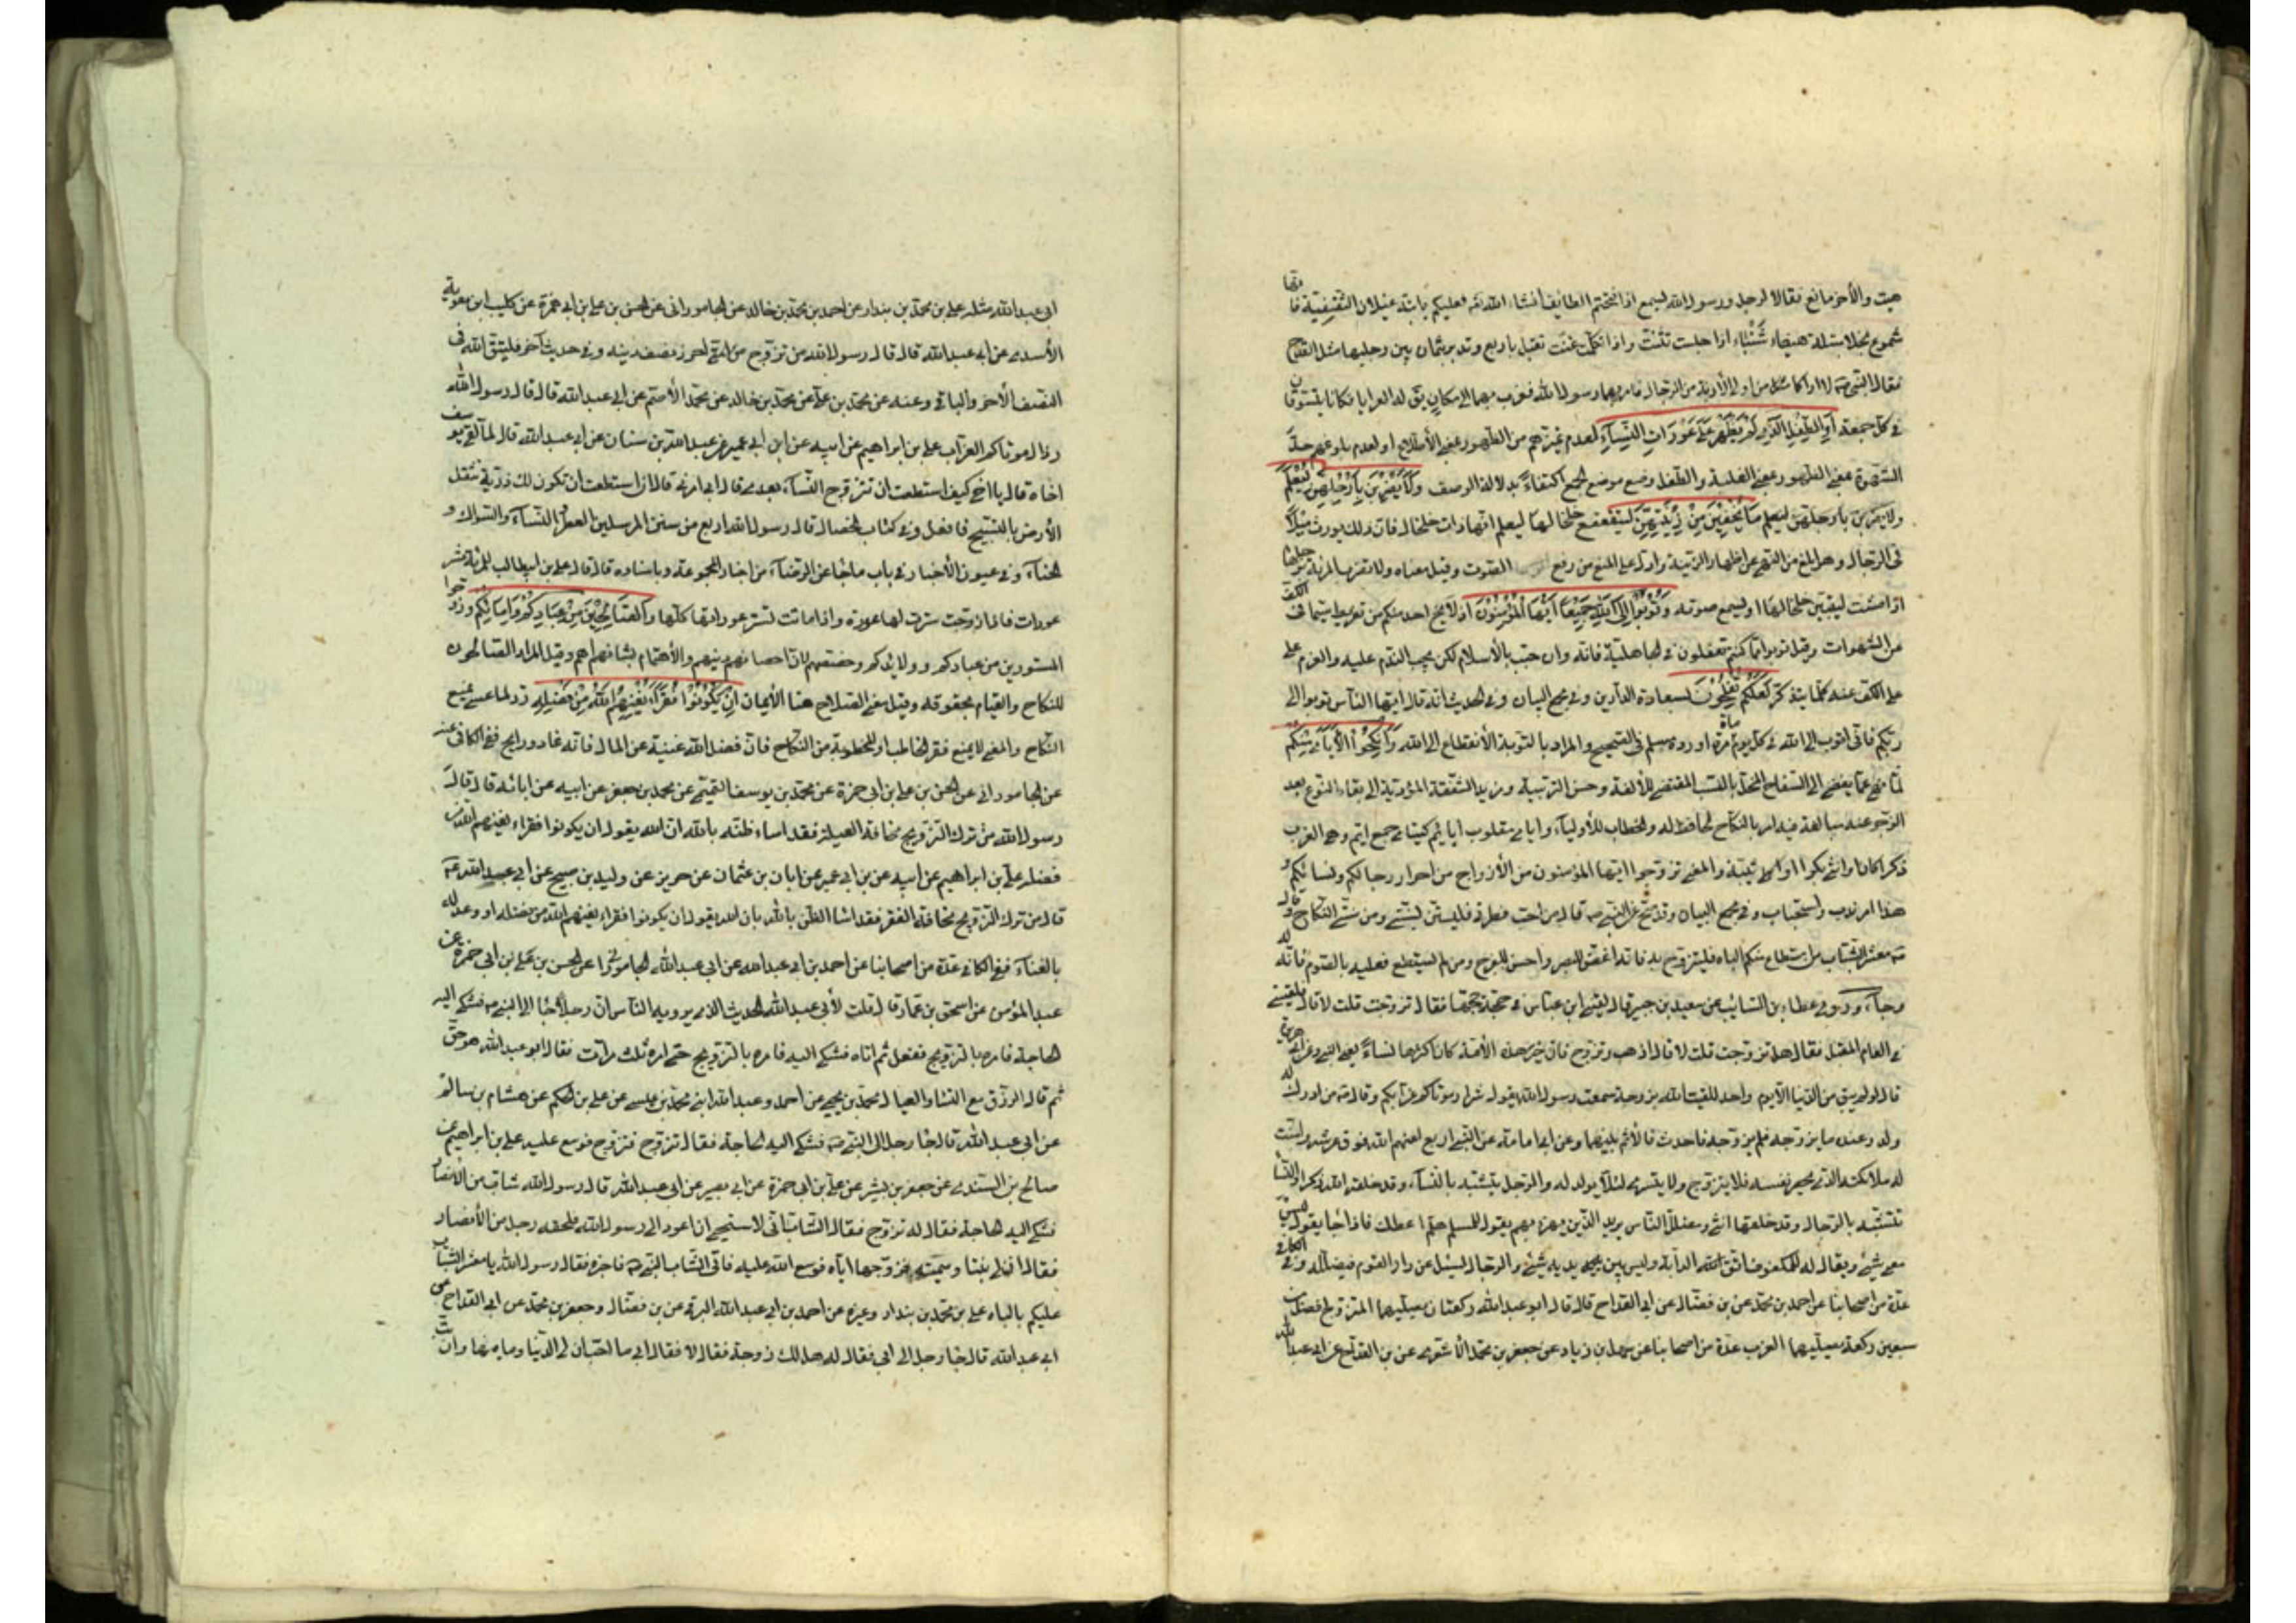 هيت والأخر مانع فقالا لرجل ورسول الله يسمع اذا افتتحتم الطايف انشاء الله فعليكم بابنة غيلان الثقفية فانها
شموع نجلا مبتلة هيفاء شنباء اذا جلست تثنت واذا تكلمت غنت تقبل باربع وتدبر بثمان بين رجليها مثل القدح
فقال النبي لا اراكما من اولي الأربة من الرجال فامر بهما رسول الله فغرب بهما الى مكان يقال له العرايا فكانا يتسوقان
في كل جمعة أو الطفل الذين لم يظهروا على عورات النساء لعدم تميزهم من الظهور بمعنى الأطلاع او لعدم بلوغهم حد
الشهوة بمعنى الظهور بمعنى الغلبة والطفل وضع موضع الجمع اكتفاء بدلالة الوصف ولا يضربن بأرجلهن ليعلم
ولا يضربن بأرجلهن ليعلم ما يخفين من زينتهن ليتقعقع خلخالها ليعلم انها ذات خلخال فان ذلك يورث ميلا
في الرجال وهو ابلغ من النهي عن اظهار الزينة وادل على المنع من رفع الصوت وقيل معناه ولا تضرب المرأة برجلها
اذا مشت ليتبين خلخالها او يسمع صوته وتوبوا إلى الله جميعا أيها المؤمنون اذ لا يخلو احد منكم من تفريط سيما في الكف
عن الشهوات وقيل توبوا مما كنتم تفعلون في الجاهلية فانه وان جب بالأسلام لكن يجب الندم عليه والعزم على
على الكف عنه كلما يتذكر لعلكم تفلحون بسعادة الدارين وفي مجمع البيان وفي الحديث انه قال ايها الناس توبوا الى
ربكم فاني اتوب الى الله في كل يوم مائة مرة اورده مسلم في الصحيح والمراد بالتوبة الأنقطاع الى الله وأنكحوا الأيامى منكم
لما نهى عما يفضي الى السفاح المخل بالنسب المقتضي للألفة وحسن التربية ومزيد الشفقة المؤدية الى بقاء النوع بعد
الزجر عنه مبالغة فيه امر بالنكاح الحافظ له والخطاب للأولياء وايامى مقلوب ايايم كيتامى جمع ايم وهو العزب
ذكرا كان او انثى بكرا او ثيبة والمعنى تزوجوا ايها المؤمنون من الأزواج من احرار رجالكم ونسائكم و
هذا امر ندب واستحباب وفي مجمع البيان وقد صح عن النبي ص قال من احب فطرتي فليستن بسنتي ومن سنتي النكاح وقال
ص يا معشر الشباب من استطاع منكم الباه فليتزوج به فانه اغض للبصر واحسن للفرج ومن لم يستطع فعليه بالصوم فانه له
وجاء وروى عطاء بن السائب عن سعيد بن جبير قال لقيني ابن عباس في حجة حجها فقال تزوجت قلت لا قال فلقيني
في العام المقبل فقال هل تزوجت قلت لا قال اذهب وتزوج فان خير هذه الأمة كان اكثرها نساء يعني النبي وعن ابي هريرة
قال لو لم يبق من الدنيا الا يوم واحد للقيت الله بزوجة سمعت رسول الله يقول شراركم عزابكم وقال ص من ادرك له
ولد وعنده ما يزوجه فلم يزوجه فاحدث فالأثم بينهما وعن ابي امامة عن النبي اربع لعنهم الله فوق عرشه وامنت
له ملائكته الذي يحصر نفسه فلا يتزوج ولا يتسرى لئلا يولد له والرجل يتشبه بالنساء وقد خلقه الله ذكرا والنسا
تتشبه بالرجال وقد خلقها انثى ومضلل الناس يريد الذين يهزء بهم يقول للمسلم هلم اعطك فاذا جا يقول ليس
معي شئ ويقال له للمكفوف اتق الدابة وليس بين يديه شئ والرجل يسئل عن دار القوم فيضلله وفي الكافي
عدة من اصحابنا عن احمد بن محمد عن بن فضال عن ابن القداح قال قال ابو عبد الله ركعتان يصليهما المتزوج افضل من
سبعين ركعة يصليها العزب عدة من اصحابنا عن سهل بن زياد عن جعفر بن محمد الأشعري عن بن القداح عن ابي عبد الله
ابي عبد الله مثله علي بن محمد بن بندار عن احمد بن محمد بن خالد عن الجاموراني عن الحسن بن علي بن ابي حمزة عن كليب بن معوية
الأسدي عن ابي عبد الله قال قال رسول الله من تزوج من احرز نصف دينه وفي حديث آخر فليتق الله في
النصف الأخر والباقي وعنه عن محمد بن علي عن محمد بن خالد عن محمد الأصم عن ابي عبد الله قال قال رسول الله
رذال موتاكم العزاب علي بن ابراهيم عن ابيه عن ابن ابي عمير عن عبد الله بن سنان عن ابي عبد الله قال لما لقى يوسف
اخاه قال يا اخي كيف استطعت ان تتزوج النساء بعدي قال ابي امرني قال ان استطعت ان تكون لك ذرية تثقل
الأرض بالتسبيح فافعل وفي كتاب الخصال قال رسول الله اربع من سنن المرسلين العطر والنساء والسواك و
الحناء وفي عيون الأخبار في باب ما جاء عن الرضا من اخبار المجموعة وباسناده قال قال علي بن ابيطالب للمرأة عشر
عورات فاذا زوجت سترت لها عورة واذا ماتت تستر عوراتها كلها والصالحين من عبادكم وإمائكم وزوجوا
المستورين من عبادكم وولائدكم وخصهم لان احصان دينهم والأهتمام بشانهم اهم وقيل المراد الصالحون
للنكاح والقيام بحقوقه وقيل معنى الصلاح هنا الأيمان إن يكونوا فقراء يغنهم الله من فضله رد لما عسى يمنع
النكاح والمعنى لا يمنع فقر الخاطب او المخطوبة من النكاح فان فضل الله غنية عن المال فانه غاد ورايح ففي الكافي عنه
عن الجاموراني عن الحسن بن علي بن ابي حمزة عن محمد بن يوسف التميمي عن محمد بن جعفر عن ابيه عن ابائه قال قال
رسول الله من ترك التزويج مخافة العيلة فقد اساء ظنه بالله ان الله يقول ان يكونوا فقراء يغنهم الله من
فضله علي بن ابراهيم عن ابيه عن بن ابي عمير عن ابان بن عثمان عن حريز عن وليد بن صبيح عن ابي عبد الله
قال من ترك التزويج مخافة الفقر فقد اسا الظن بالله بان الله يقول ان يكونوا فقراء يغنهم الله من فضله او وعد الله
بالغناء ففي الكافي عدة من اصحابنا عن احمد بن ابي عبد الله عن ابي عبد الله الجاموراني عن الحسن بن علي بن ابي حمزة عن
عبد المؤمن عن اسحق بن عمار قال قلت لأبي عبد الله الحديث الذي يرويه الناس ان رجلا جاء الى النبي ص فشكى اليه
الحاجة فامره بالتزويج ففعل ثم اتاه فشكى اليه فامره بالتزويج حتى امره ثلث مرات فقال ابو عبد الله هو حق
ثم قال الرزق مع النساء والعيال محمد بن يحيى عن احمد وعبد الله ابني محمد بن عيسى عن علي بن الحكم عن هشام بن سالم
عن ابي عبد الله قال جا رجل الى النبي ص فشكى اليه الحاجة فقال تزوج فتزوج فوسع عليه علي بن ابراهيم عن
صالح بن السندي عن جعفر بن بشير عن علي بن ابي حمزة عن ابي بصير عن ابي عبد الله قال رسول الله شاب من الانصار
فشكى اليه الحاجة فقال له تزوج فقال الشاب اني لاستحيي ان اعود الى رسول الله فلحقه رجل من الأنصار
فقال ان لي بنتا وسيمة فزوجها اياه فوسع الله عليه فاتى الشاب النبي ص فاخبره فقال رسول الله يا معشر الشباب
عليكم بالباه علي بن محمد بن بندار وغيره عن احمد بن ابي عبد الله البرقي عن بن فضال وجعفر بن محمد عن ابن القداح عن
ابي عبد الله قال جا رجل الى ابي فقال له هل لك زوجة فقال لا فقال ابي ما احب ان لي الدنيا وما فيها وان